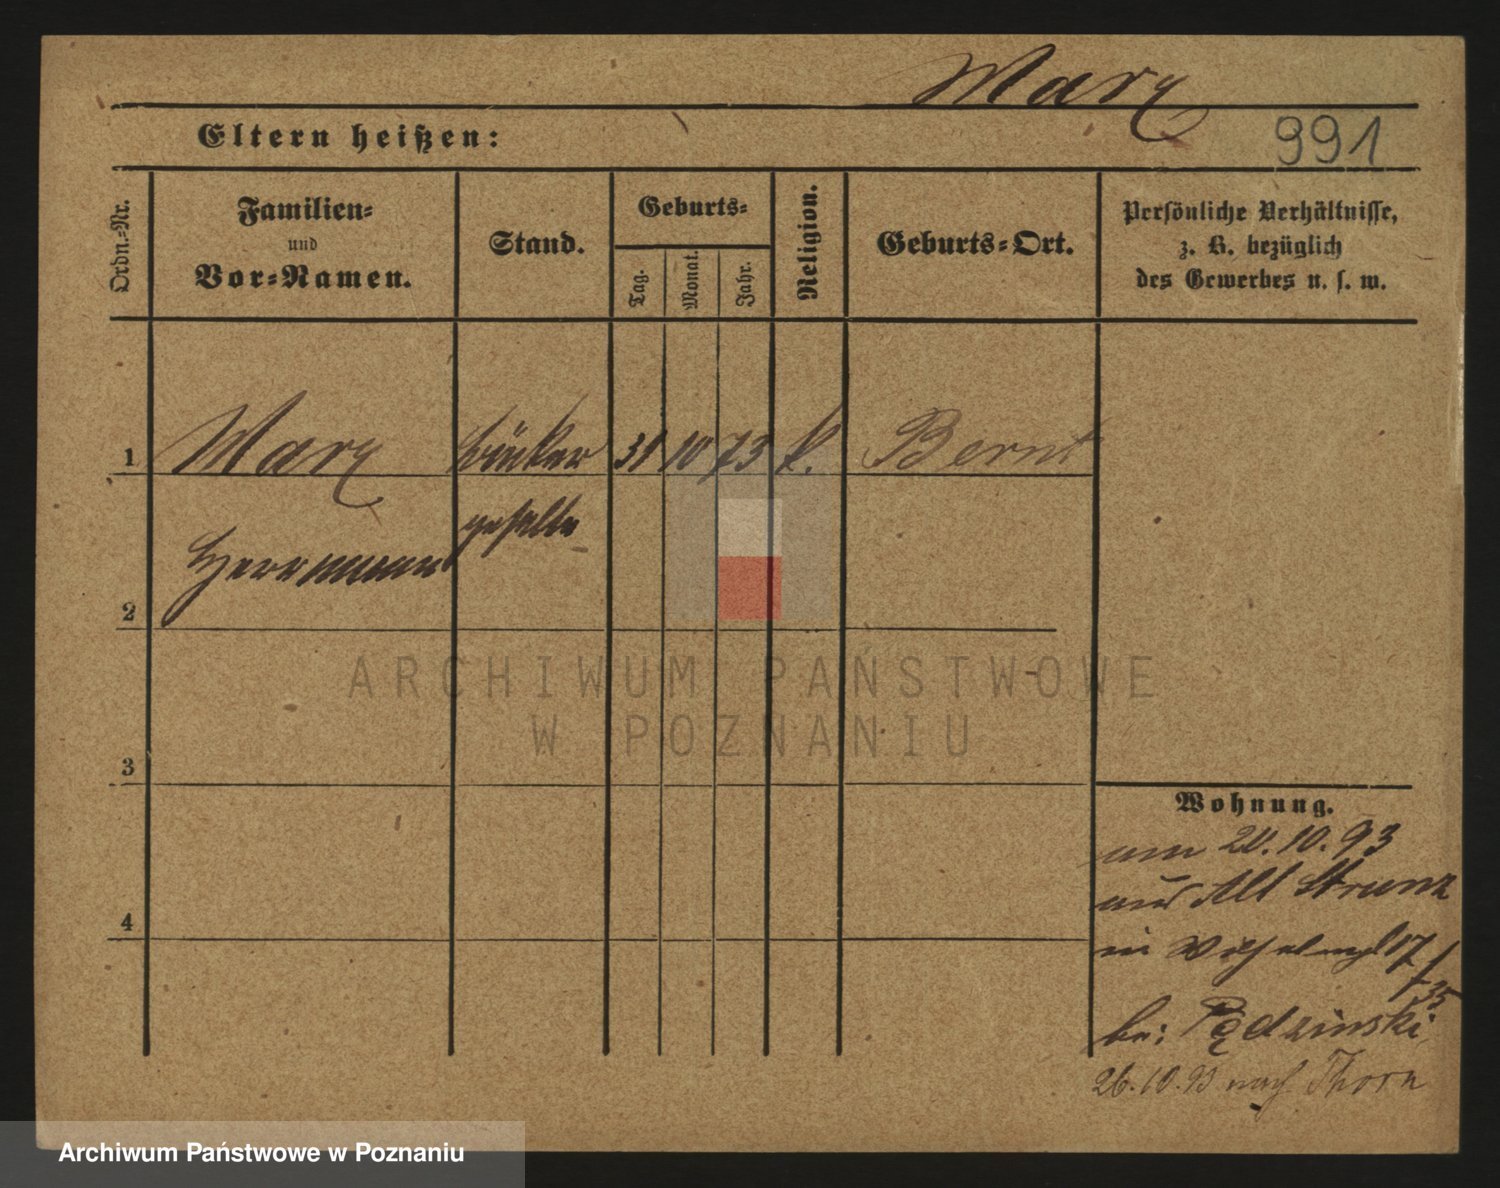 Marx
Eltern heißen:
991
Ordn.-Nr.
Familien-
und
Vor-Namen.
Stand.
Geburts-
Tag.
Monat.
Jahr.
Religion.
Geburts-Ort.
Persönliche Verhältnisse,
z. B. bezüglich
des Gewerbes u. s. w.
1
Marx
Bäcker
31
10
73
k.
Bernt
geselle
Herrmann
2
ARCHIWUM PAŃSTWOWE
W POZNANIU
3
Wohnung.
am 20.10.93
aus Alt
4
in Wilhelmpl 17/35
bei Pędzinski
26.10.93 nach Thorn
Archiwum Państwowe w Poznaniu